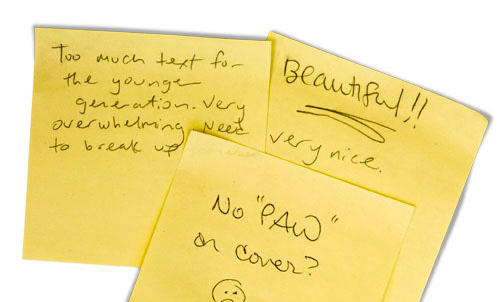 Too much text for
the younger
generation. Very
overwhelming need
to break up
Beautiful!!
very nice.
No "PAW"
on cover?